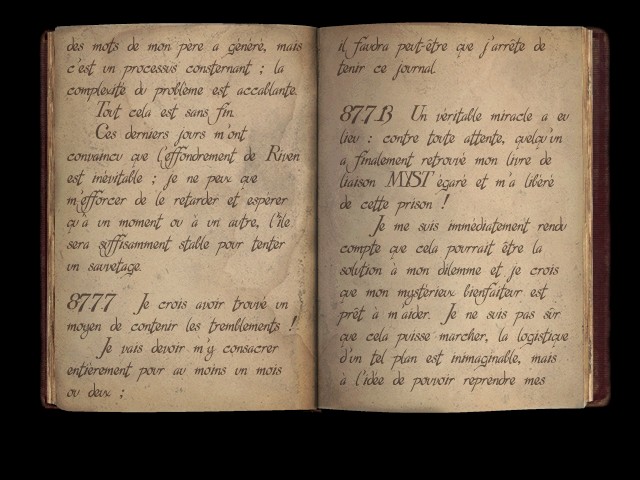 des mots de mon père a généré, mais
c'est un processus consternant ; la
complexité du problème est accablante.
Tout cela est sans fin.
Ces derniers jours m'ont
convaincu que l'effondrement de Riven
est inévitable ; je ne peux que
m'efforcer de le retarder et espérer
qu'à un moment ou à un autre, l'île
sera suffisamment stable pour tenter
un sauvetage.
87.7.7 Je crois avoir trouvé un
moyen de contenir les tremblements !
Je vais devoir m'y consacrer
entièrement pour au moins un mois
ou deux ;
il faudra peut-être que j'arrête de
tenir ce journal.
87.7.13 Un véritable miracle a eu
lieu : contre toute attente, quelqu'un
a finalement retrouvé mon livre de
liaison MYST égaré et m'a libéré
de cette prison !
Je me suis immédiatement rendu
compte que cela pourrait être la
solution à mon dilemme et je crois
que mon mystérieux bienfaiteur est
prêt à m'aider. Je ne suis pas sûr
que cela puisse marcher, la logistique
d'un tel plan est inimaginable, mais
à l'idée de pouvoir reprendre mes